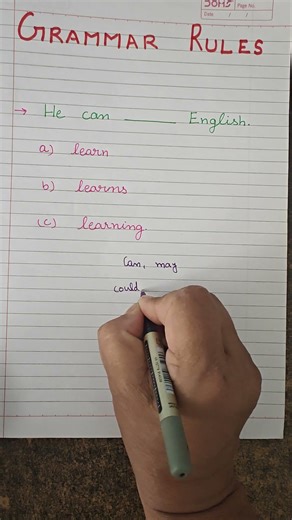 Page No.
Date
GRAMMAR RULES
→ He can ______ English.
a) learn
b) learns
(c) learning
Can, may
could